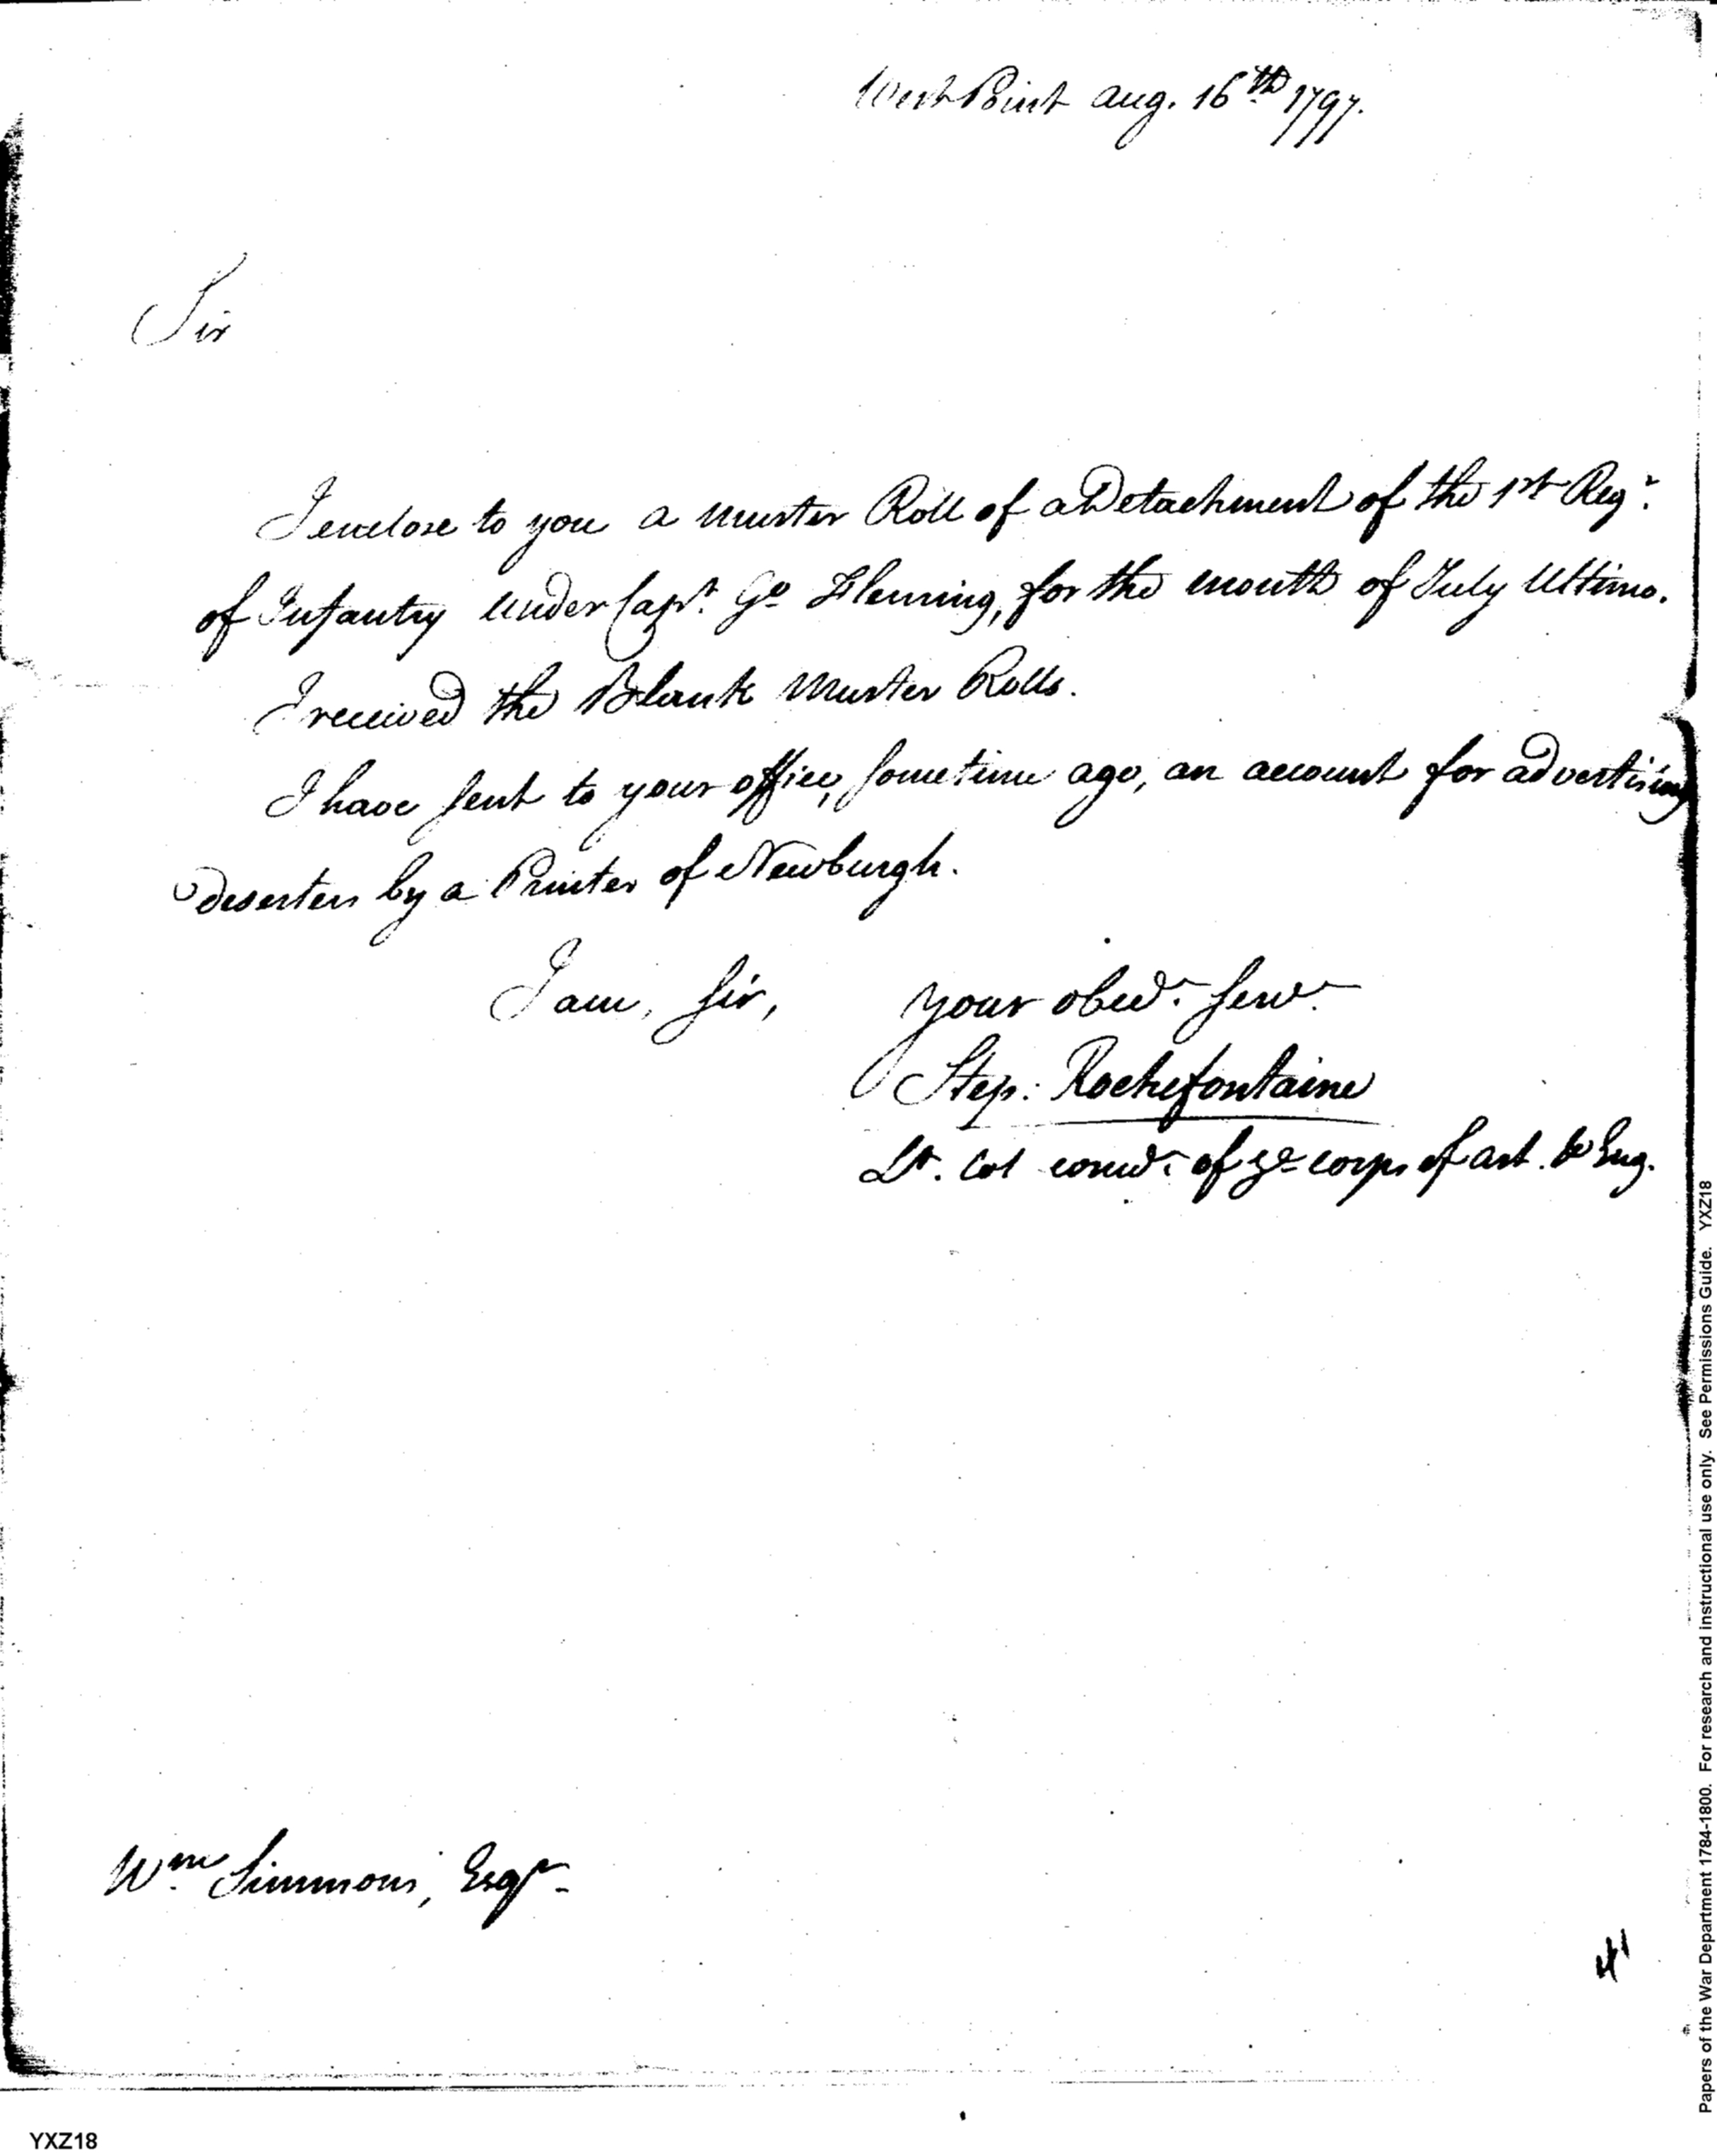 West Point aug. 16th 1797.
Sir
I enclose to you a muster Roll of a Detachment of the 1st Regt.
of Infantry under Capt. Go Fleming, for the month of July Ultimo.
I received the Blank muster Rolls.
I have sent to your office, sometime ago, an account for advertising
deserters by a Printer of Newburgh.
I am, sir, your obedt. servt.
Step: Rochefontaine
Lt. Col comdt. of ye corps of art. & Eng.
Wm. Simmons, Esqr.
41
YXZ18
Papers of the War Department 1784-1800. For research and instructional use only. See Permissions Guide. YXZ18